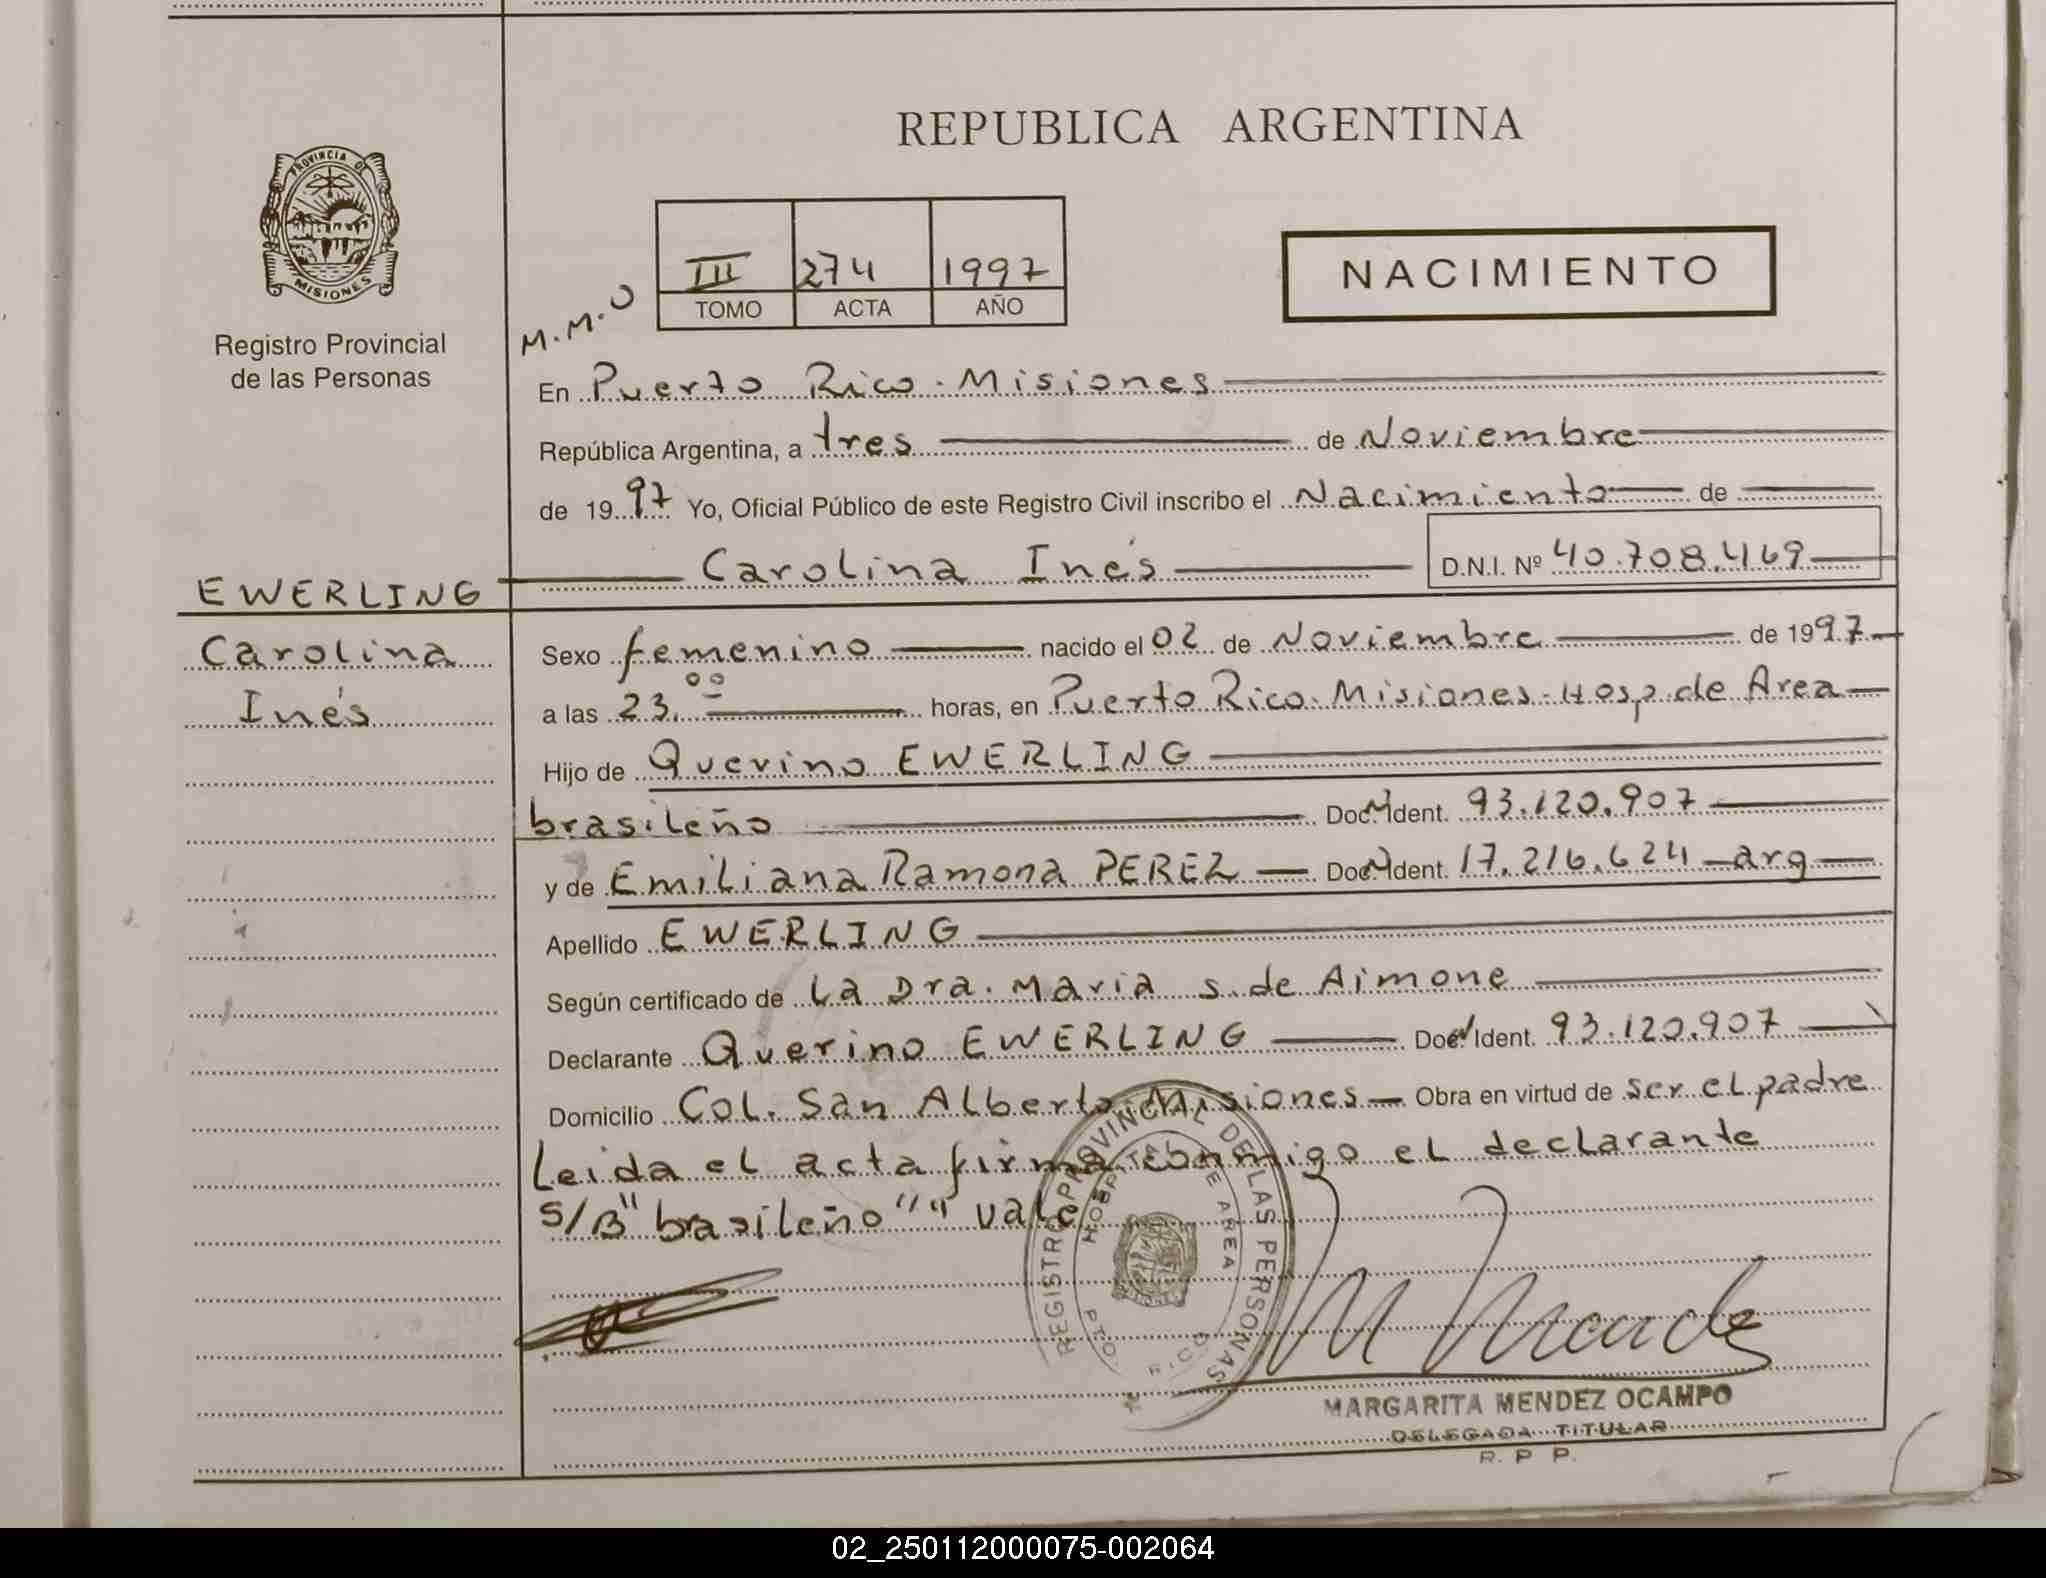 REPUBLICA ARGENTINA
PROVINCIA DE MISIONES
Registro Provincial
de las Personas
III 274 1997
TOMO ACTA AÑO
NACIMIENTO
M.M.O
En Puerto Rico. Misiones
República Argentina, a tres de Noviembre
de 1997 Yo, Oficial Público de este Registro Civil inscribo el Nacimiento de
Carolina Inés D.N.I. Nº 40.708.469
EWERLING
Carolina
Inés
Sexo femenino nacido el 02 de Noviembre de 1997
a las 23.00 horas, en Puerto Rico. Misiones. Hosp. de Area
Hijo de Querino EWERLING
brasileño Doc. Ident. 93.120.907
y de Emiliana Ramona PEREZ Doc. Ident. 17.216.624 arg
Apellido EWERLING
Según certificado de La Dra. Maria S. de Aimone
Declarante Querino EWERLING Doc. Ident. 93.120.907
Domicilio Col. San Alberto Misiones Obra en virtud de ser el padre
Leida el acta firma conmigo el declarante
S/B "brasileño" " vale
REGISTRO PROVINCIAL DE LAS PERSONAS
HOSPITAL DE AREA
PTO. RICO
MARGARITA MENDEZ OCAMPO
DELEGADA TITULAR
R. P. P.
02_250112000075-002064